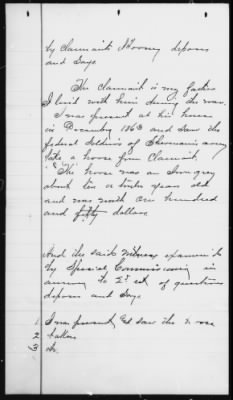 by Claimants Attorney deposes
and Says.
The claimant is my father
I lived with him during the war.
I was present at his house
in December 1863 and saw the
federal Soldiers of Shermans army
take a horse from Claimant.
The horse was an iron grey
about ten or twelve years old
and was worth one hundred
and fifty dollars
And the said witness examined
by Special Commissioner in
answer to 2d set of questions
deposes and Says
1 I was present and saw the horse
2 taken
3